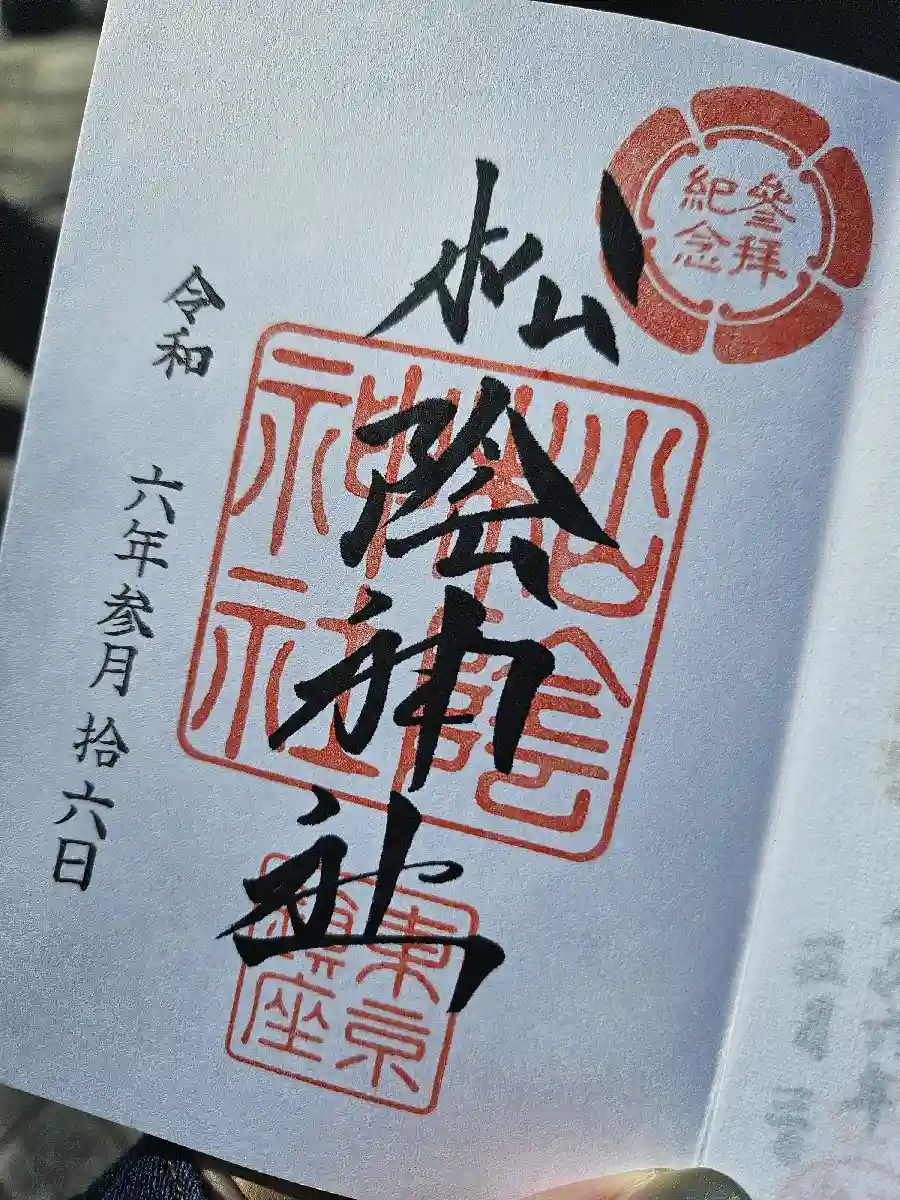 參拜
紀念
松陰神社
松陰
神社
東京
鎮座
令和 六年参月 拾六日